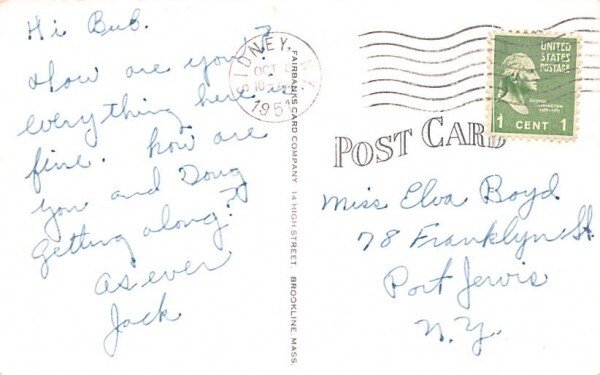 Hi Bub.
How are you?
everything here is
fine. how are
you and Doug
getting along?
As ever
Jack
SIDNEY, N.Y.
OCT
195
FAIRBANKS CARD COMPANY 14 HIGH STREET. BROOKLINE, MASS.
UNITED
STATES
POSTAGE
GEORGE
WASHINGTON
1 CENT 1
POST CARD
Miss Elva Boyd
78 Franklyn St.
Port Jervis
N.Y.